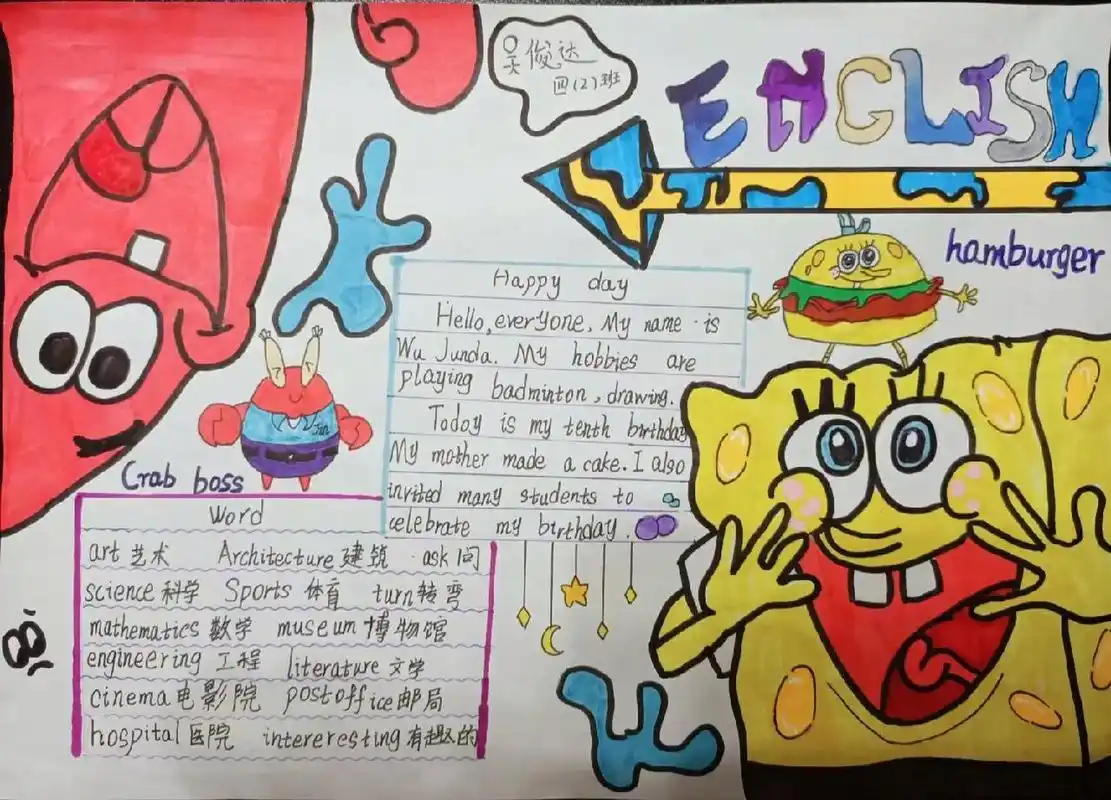 吴俊达
四(2)班
ENGLISH
hamburger
Happy day
Hello, everyone, My name is
Wu Junda. My hobbies are
playing badminton, drawing.
Today is my tenth birthday
My mother made a cake. I also
invited many students to
celebrate my birthday.
Crab boss
Word
art 艺术 Architecture 建筑 ask 问
science 科学 Sports 体育 turn 转弯
mathematics 数学 museum 博物馆
engineering 工程 literature 文学
cinema 电影院 post office 邮局
hospital 医院 intereresting 有趣的